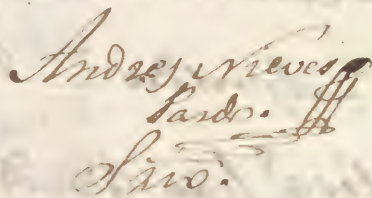 Andres Nieves
Pardo.
Srio.